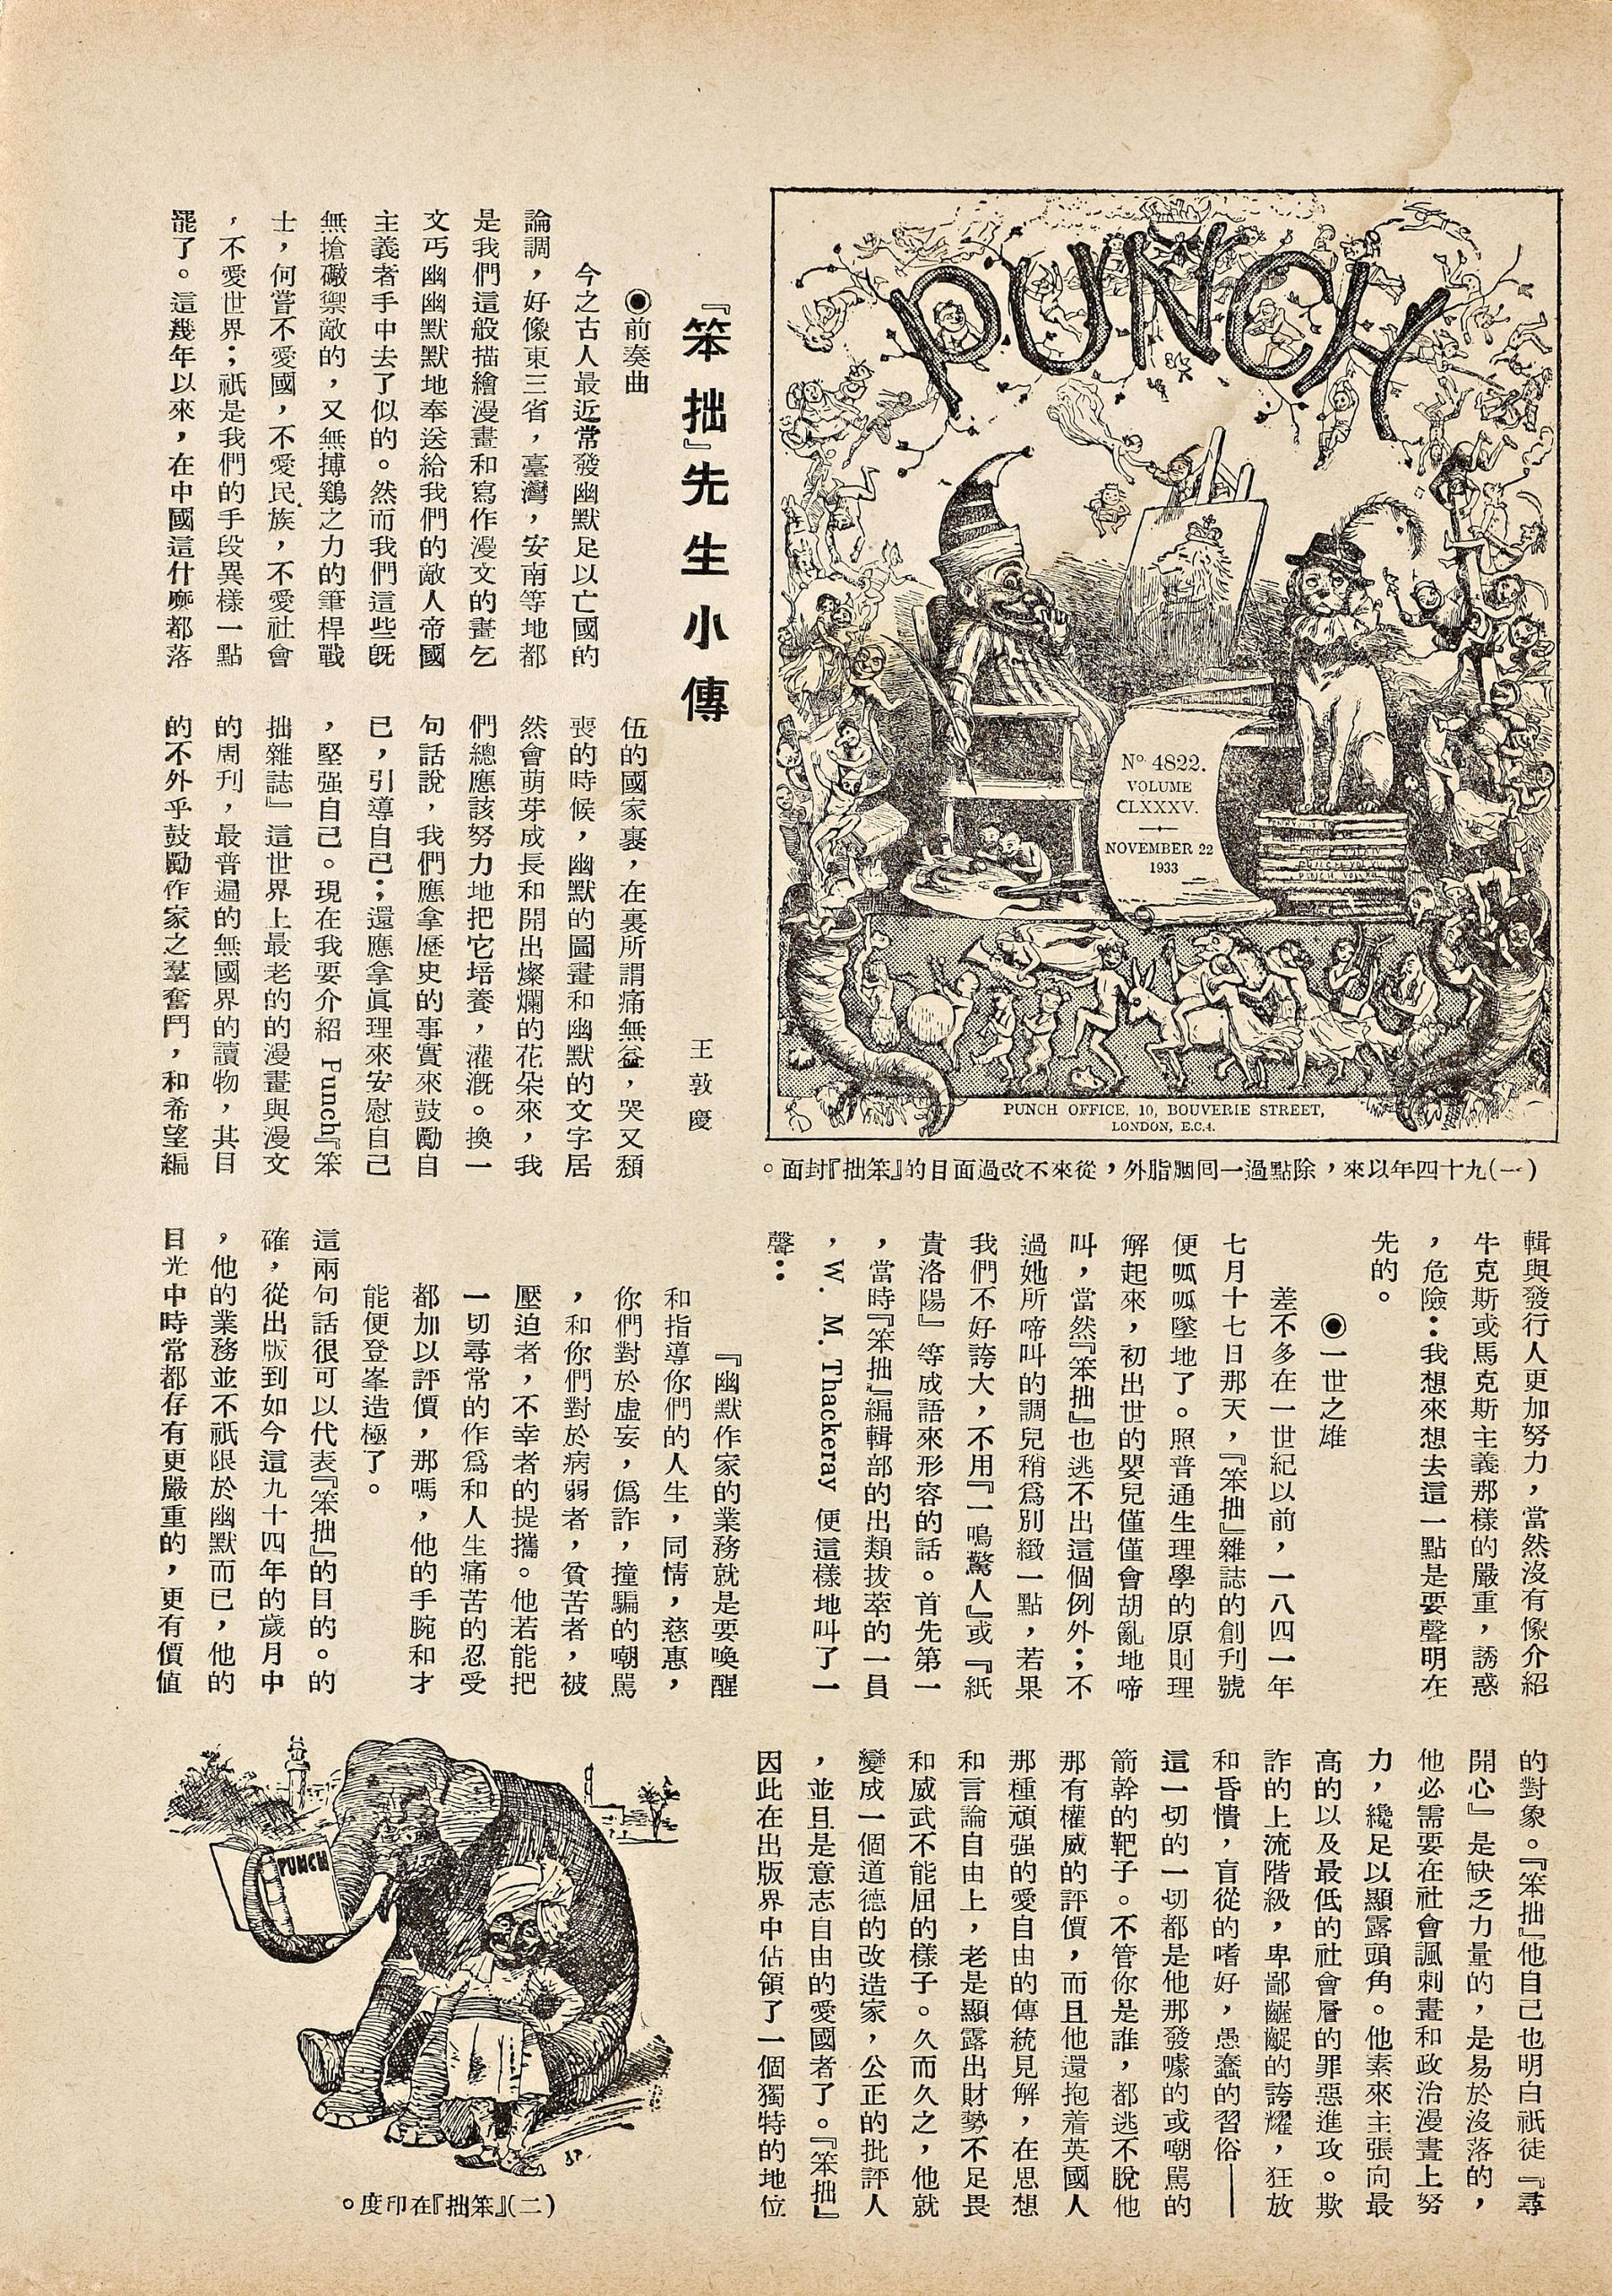 PUNCH
No. 4822.
VOLUME
CLXXXV.
NOVEMBER 22
1933
PUNCH OFFICE, 10, BOUVERIE STREET,
LONDON, E.C.4.
(一)九十四年以來,除點過一回胭脂外,從來不改過面目的『笨拙』封面。
『笨拙』先生小傳
王敦慶
◉前奏曲
今之古人最近常發幽默足以亡國的
論調,好像東三省,臺灣,安南等地都
是我們這般描繪漫畫和寫作漫文的畫乞
文丐幽幽默默地奉送給我們的敵人帝國
主義者手中去了似的。然而我們這些旣
無搶礮禦敵的,又無搏鷄之力的筆桿戰
士,何嘗不愛國,不愛民族,不愛社會
,不愛世界;祇是我們的手段異樣一點
罷了。這幾年以來,在中國這什麼都落
伍的國家裏,在裏所謂痛無益,哭又頹
喪的時候,幽默的圖畫和幽默的文字居
然會萌芽成長和開出燦爛的花朵來,我
們總應該努力地把它培養,灌漑。換一
句話說,我們應拿歷史的事實來鼓勵自
已,引導自己;還應拿眞理來安慰自己
,堅强自己。現在我要介紹 Punch『笨
拙雜誌』這世界上最老的的漫畫與漫文
的周刊,最普遍的無國界的讀物,其目
的不外乎鼓勵作家之羣奮鬥,和希望編
輯與發行人更加努力,當然沒有像介紹
牛克斯或馬克斯主義那樣的嚴重,誘惑
,危險:我想來想去這一點是要聲明在
先的。
◉一世之雄
差不多在一世紀以前,一八四一年
七月十七日那天,『笨拙』雜誌的創刊號
便呱呱墜地了。照普通生理學的原則理
解起來,初出世的嬰兒僅僅會胡亂地啼
叫,當然『笨拙』也逃不出這個例外;不
過她所啼叫的調兒稍爲別緻一點,若果
我們不好誇大,不用『一鳴驚人』或『紙
貴洛陽』等成語來形容的話。首先第一
,當時『笨拙』編輯部的出類拔萃的一員
,W. M. Thackeray 便這樣地叫了一
聲:
『幽默作家的業務就是要喚醒
和指導你們的人生,同情,慈惠,
你們對於虛妄,僞詐,撞騙的嘲罵
,和你們對於病弱者,貧苦者,被
壓迫者,不幸者的提攜。他若能把
一切尋常的作爲和人生痛苦的忍受
都加以評價,那嗎,他的手腕和才
能便登峯造極了。
這兩句話很可以代表『笨拙』的目的。的
確,從出版到如今這九十四年的歲月中
,他的業務並不祇限於幽默而已,他的
目光中時常都存有更嚴重的,更有價值
的對象。『笨拙』他自己也明白祇徒『尋
開心』是缺乏力量的,是易於沒落的,
他必需要在社會諷刺畫和政治漫畫上努
力,纔足以顯露頭角。他素來主張向最
高的以及最低的社會層的罪惡進攻。欺
詐的上流階級,卑鄙齷齪的誇耀,狂放
和昏憒,盲從的嗜好,愚蠢的習俗——
這一切的一切都是他那發噱的或嘲罵的
箭幹的靶子。不管你是誰,都逃不脫他
那有權威的評價,而且他還抱着英國人
那種頑强的愛自由的傳統見解,在思想
和言論自由上,老是顯露出財勢不足畏
和威武不能屈的樣子。久而久之,他就
變成一個道德的改造家,公正的批評人
,並且是意志自由的愛國者了。『笨拙』
因此在出版界中佔領了一個獨特的地位
PUNCH
(二)『笨拙』在印度。